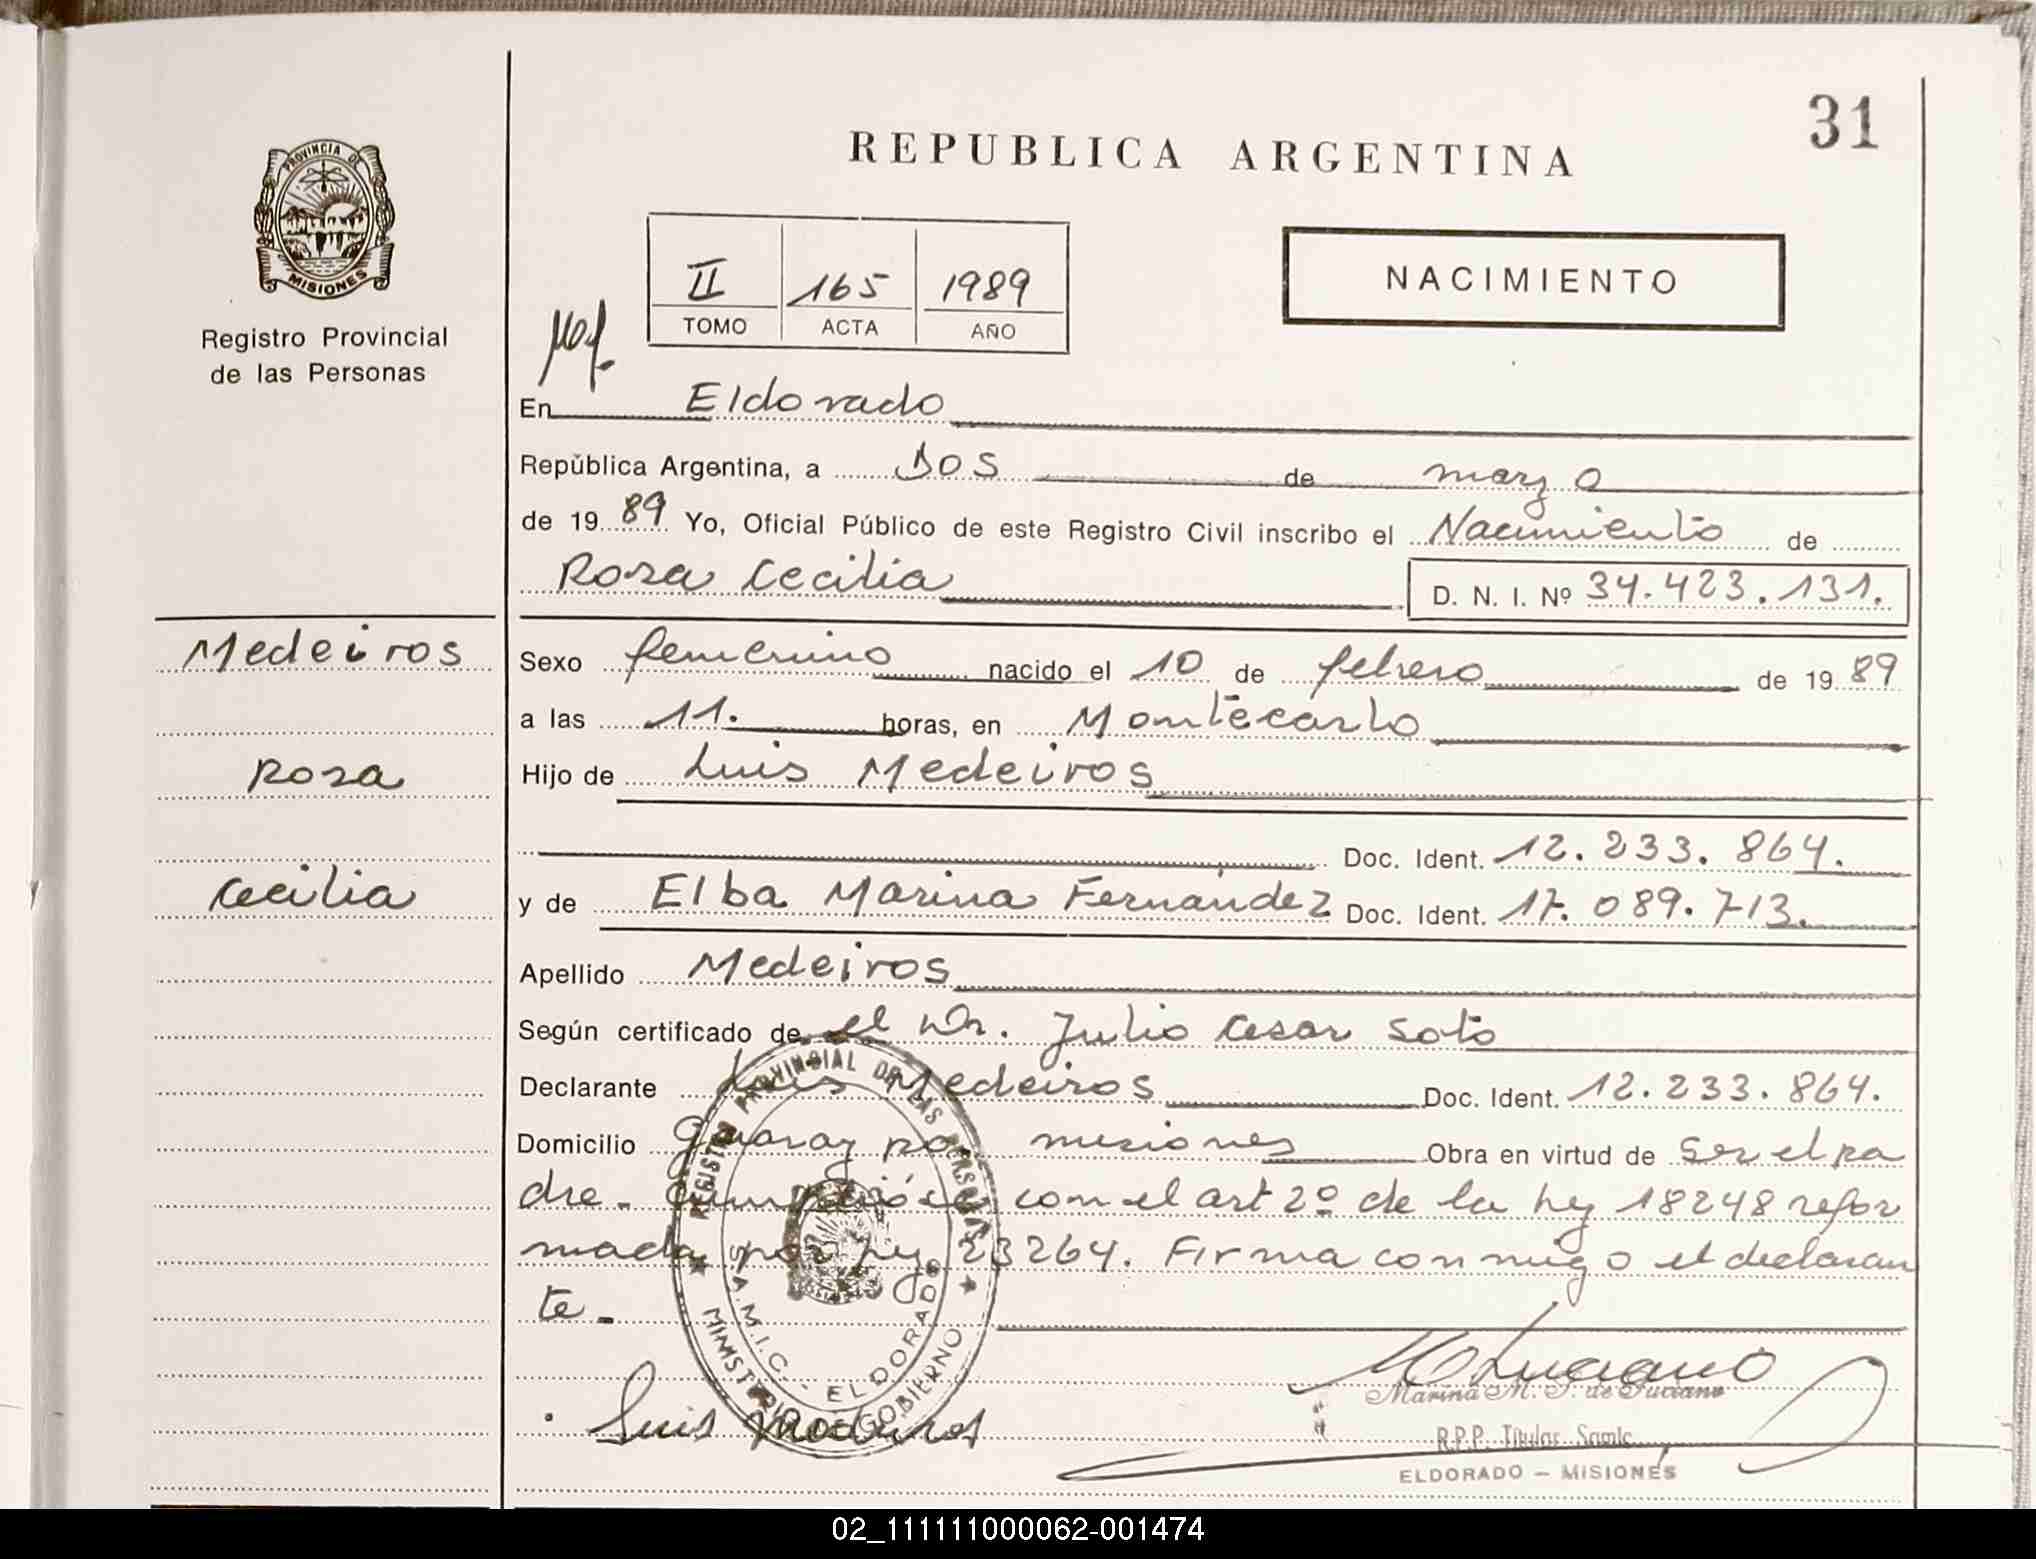 31
REPUBLICA ARGENTINA
PROVINCIA DE
MISIONES
Registro Provincial
de las Personas
II 165 1989
TOMO ACTA AÑO
NACIMIENTO
En Eldorado
República Argentina, a Dos de marzo
de 19 89 Yo, Oficial Público de este Registro Civil inscribo el Nacimiento de
Rosa Cecilia D. N. I. Nº 34.423.131.
Medeiros
Rosa
Cecilia
Sexo femenino nacido el 10 de febrero de 19 89
a las 11. horas, en Montecarlo
Hijo de Luis Medeiros
Doc. Ident. 12.233.864.
y de Elba Marina Fernández Doc. Ident. 17.089.713.
Apellido Medeiros
Según certificado de el Dr. Julio Cesar Soto
Declarante Luis Medeiros Doc. Ident. 12.233.864.
Domicilio Guaray po misiones Obra en virtud de ser el pa
dre. con el art 2º de la ley 18248 refor
mada por ley 23264. Firma conmigo el declaran
te.
REGISTRO PROVINCIAL DE LAS PERSONAS
S.A.M.I.C. - ELDORADO
MINISTERIO DE GOBIERNO
Luis Medeiros
Marina M. de Luciano
R.P.P. Titular Samic
ELDORADO – MISIONES
02_111111000062-001474